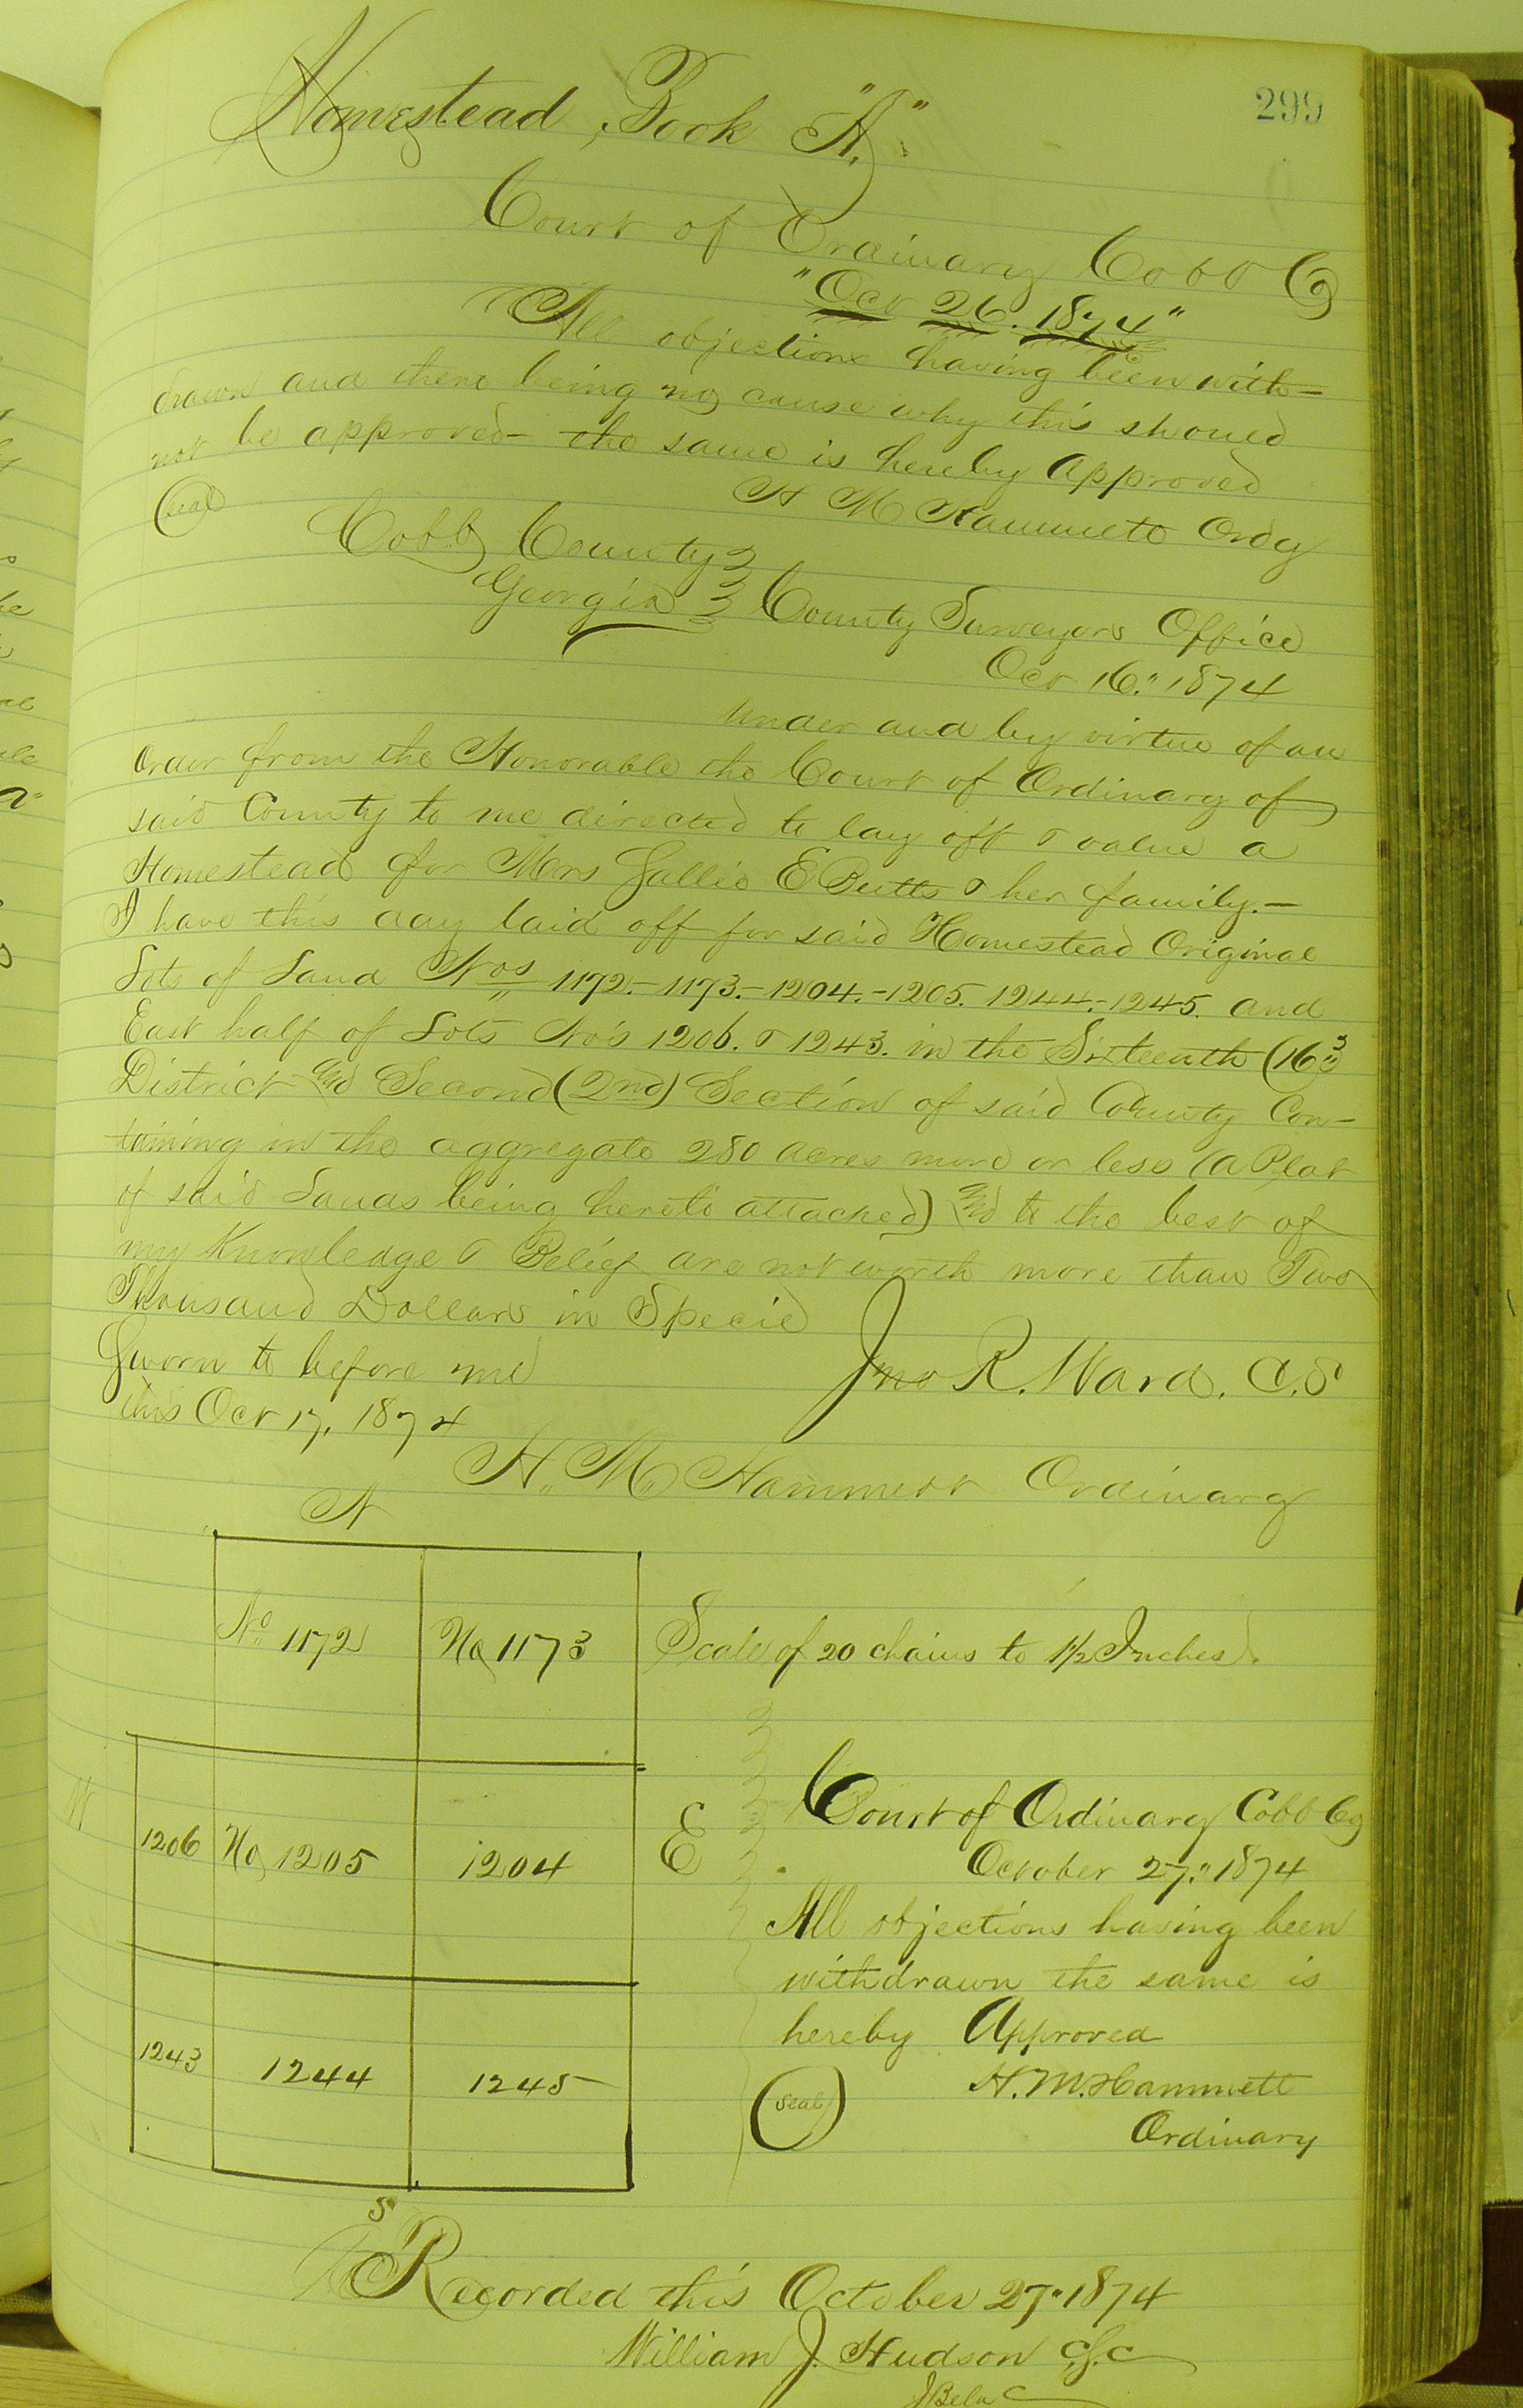 299
Homestead Book "A."
Court of Ordinary Cobb Co
"Oct 26. 1874"
All objections having been with-
drawn and there being no cause why this should
not be approved- the same is hereby Approved
(seal)
H M Hammett Ordy
Cobb County
Georgia
County Surveyors Office
Oct 16." 1874
Under and by virtue of an
order from the Honorable the Court of Ordinary of
said County to me directed to lay off & value a
Homestead for Mrs Sallie E Butts & her family.-
I have this day laid off for said Homestead Original
Lots of Land Nos 1172.-1173.-1204.-1205. 1244.-1245. and
East half of Lots No's 1206. & 1243. in the Sixteenth (16
District and Second (2nd) Section of said County Con-
taining in the aggregate 280 acres more or less (a Plat
of said Lands being hereto attached) and to the best of
my Knowledge & Belief are not worth more than Two
Thousand Dollars in Specie
Sworn to before me
Jno R. Ward. C.S
this Oct 17, 1874
H. M. Hammett Ordinary
N
No 1172
No 1173
Scale of 20 chains to 1½ Inches.
W
1206
No 1205
1204
E
Court of Ordinary Cobb Co
October 27." 1874
All objections having been
withdrawn the same is
hereby Approved
1243
1244
1245
(seal)
H. M. Hammett
Ordinary
S
Recorded this October 27" 1874
William J. Hudson C.S.C